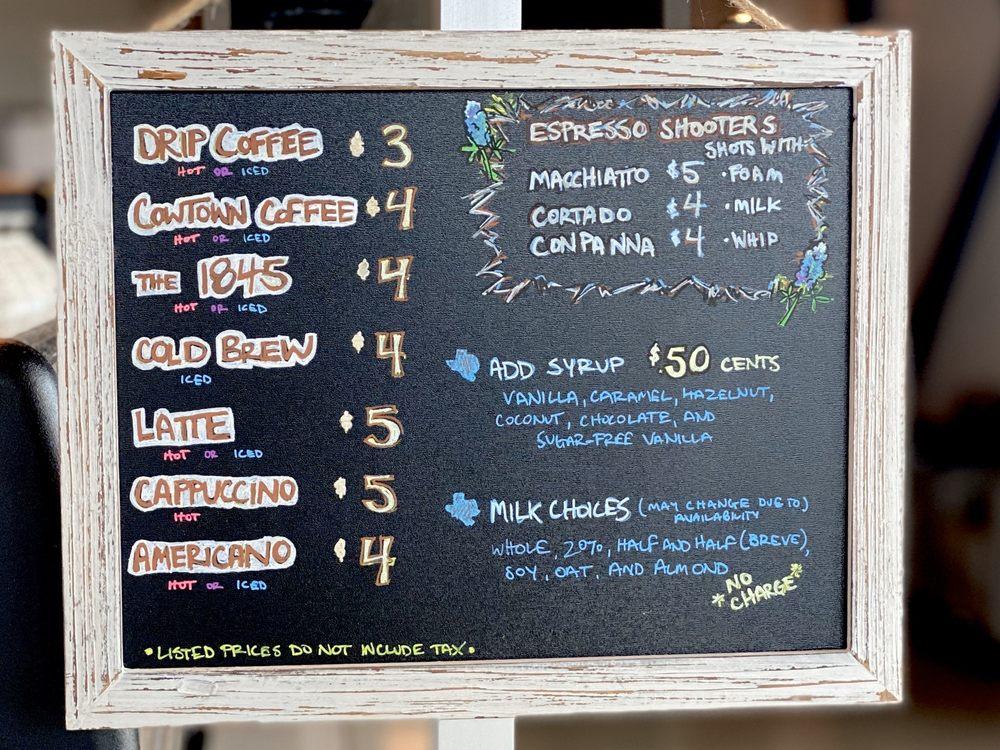 DRIP COFFEE $3
HOT OR ICED
COWTOWN COFFEE $4
HOT OR ICED
THE 1845 $4
HOT OR ICED
COLD BREW $4
ICED
LATTE $5
HOT OR ICED
CAPPUCCINO $5
HOT
AMERICANO $4
HOT OR ICED
•LISTED PRICES DO NOT INCLUDE TAX•
ESPRESSO SHOOTERS
SHOTS WITH-
MACCHIATTO $5 •FOAM
CORTADO $4 •MILK
CON PANNA $4 •WHIP
ADD SYRUP $.50 CENTS
VANILLA, CARAMEL, HAZELNUT,
COCONUT, CHOCOLATE, AND
SUGAR-FREE VANILLA
MILK CHOICES (MAY CHANGE DUE TO)
AVAILABILITY
WHOLE, 20%, HALF AND HALF (BREVE),
SOY, OAT, AND ALMOND
*NO
CHARGE*